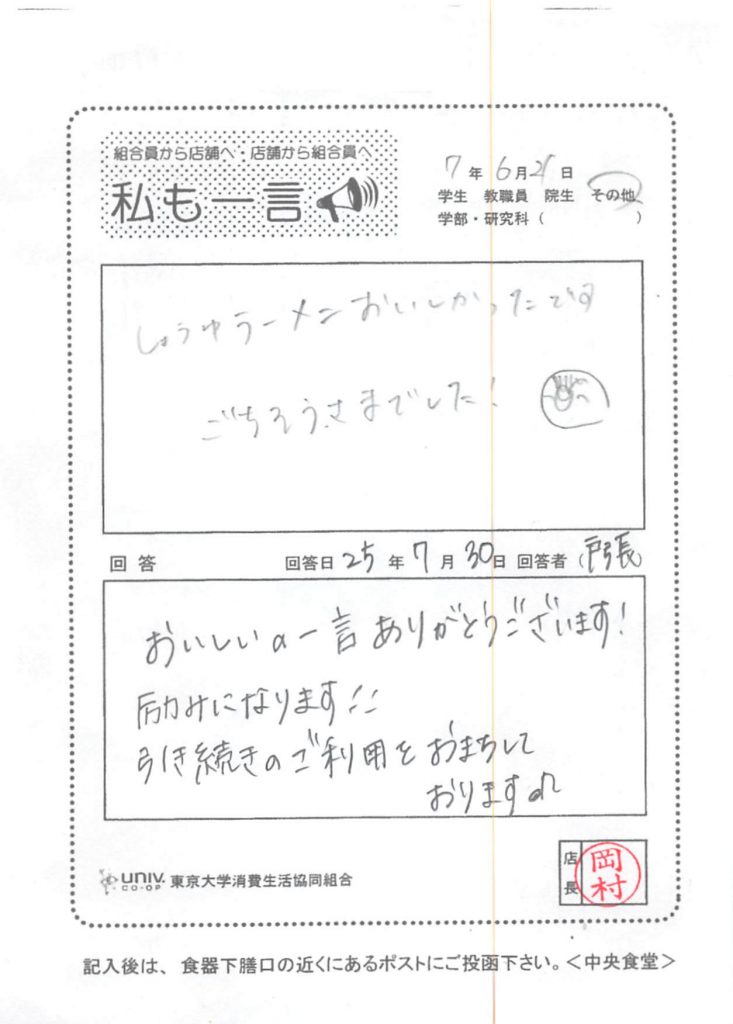 組合員から店舗へ・店舗から組合員へ
私も一言
7年6月21日
学生 教職員 院生 その他
学部・研究科（ ）
しょうゆラーメンおいしかったです
ごちそうさまでした！
回答 回答日25年7月30日 回答者（戸張）
おいしいの一言ありがとうございます！
励みになります!!
引き続きのご利用をおまちして
おります♪
UNIV. CO-OP 東京大学消費生活協同組合
店長 岡村
記入後は、食器下膳口の近くにあるポストにご投函下さい。＜中央食堂＞